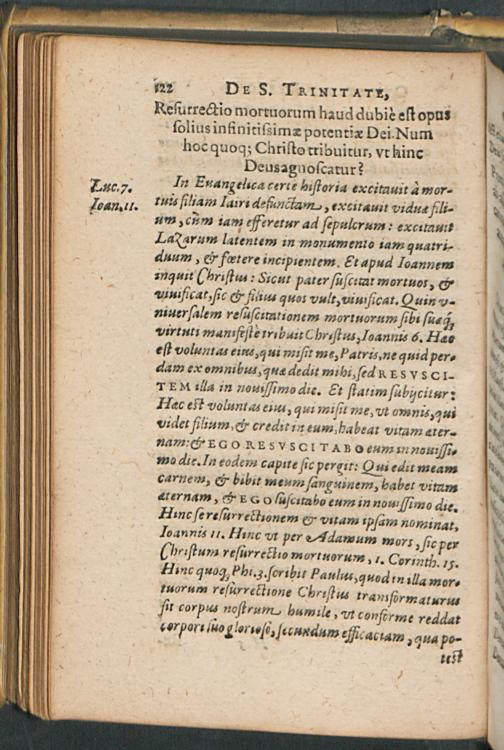 122 DE S. TRINITATE,
Resurrectio mortuorum haud dubiè est opus
solius infinitissimæ potentiæ Dei. Num
hoc quoq; Christo tribuitur, vt hinc
Deus agnoscatur?
Luc. 7.
Ioan. 11.
In Euangelica certe historia excitauit à mor-
tuis filiam Iairi defunctam, excitauit viduæ fili-
um, cùm iam efferetur ad sepulcrum: excitauit
Lazarum latentem in monumento iam quatri-
duum, & fœtere incipientem. Et apud Ioannem
inquit Christus: Sicut pater suscitat mortuos, &
viuificat, sic & filius quos vult, viuificat. Quin v-
niuersalem resuscitationem mortuorum sibi suæq;
virtuti manifestè tribuit Christus, Ioannis 6. Hæc
est voluntas eius, qui misit me, Patris, ne quid per-
dam ex omnibus, quæ dedit mihi, sed RESVSCI-
TEM illa in nouissimo die. Et statim subijcitur:
Hæc est voluntas eius, qui misit me, vt omnis, qui
videt filium, & credit in eum, habeat vitam æter-
nam: & EGO RESVSCITABO eum in nouissi-
mo die. In eodem capite sic pergit: Qui edit meam
carnem, & bibit meum sanguinem, habet vitam
æternam, & EGO suscitabo eum in nouissimo die.
Hinc se resurrectionem & vitam ipsam nominat,
Ioannis 11. Hinc vt per Adamum mors, sic per
Christum resurrectio mortuorum, 1. Corinth. 15.
Hinc quoq; Phi. 3. scribit Paulus, quod in illa mor-
tuorum resurrectione Christus transformaturus
sit corpus nostrum humile, vt conforme reddat
corpori suo glorioso, secundum efficaciam, qua po-
test